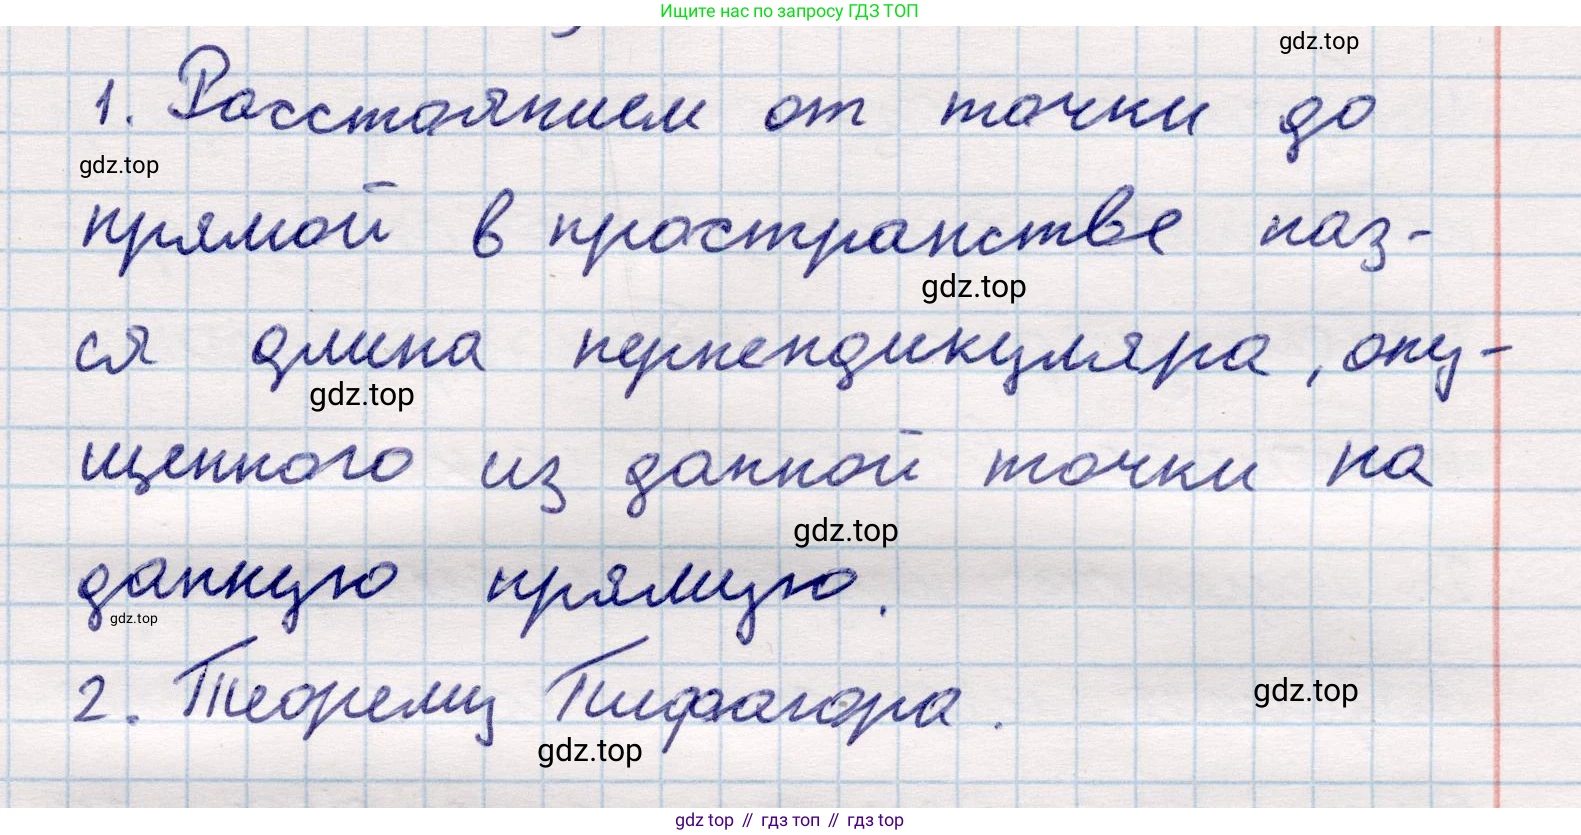 Ищите нас по запросу ГДЗ ТОП
gdz.top
1. Расстоянием от точки до
gdz.top
прямой в пространстве наз-
gdz.top
ся длина перпендикуляра, опу-
gdz.top
щенного из данной точки на
gdz.top
данную прямую.
gdz.top
2. Теорему Пифагора.
gdz.top
gdz.top
gdz top // гдз топ // гдз top